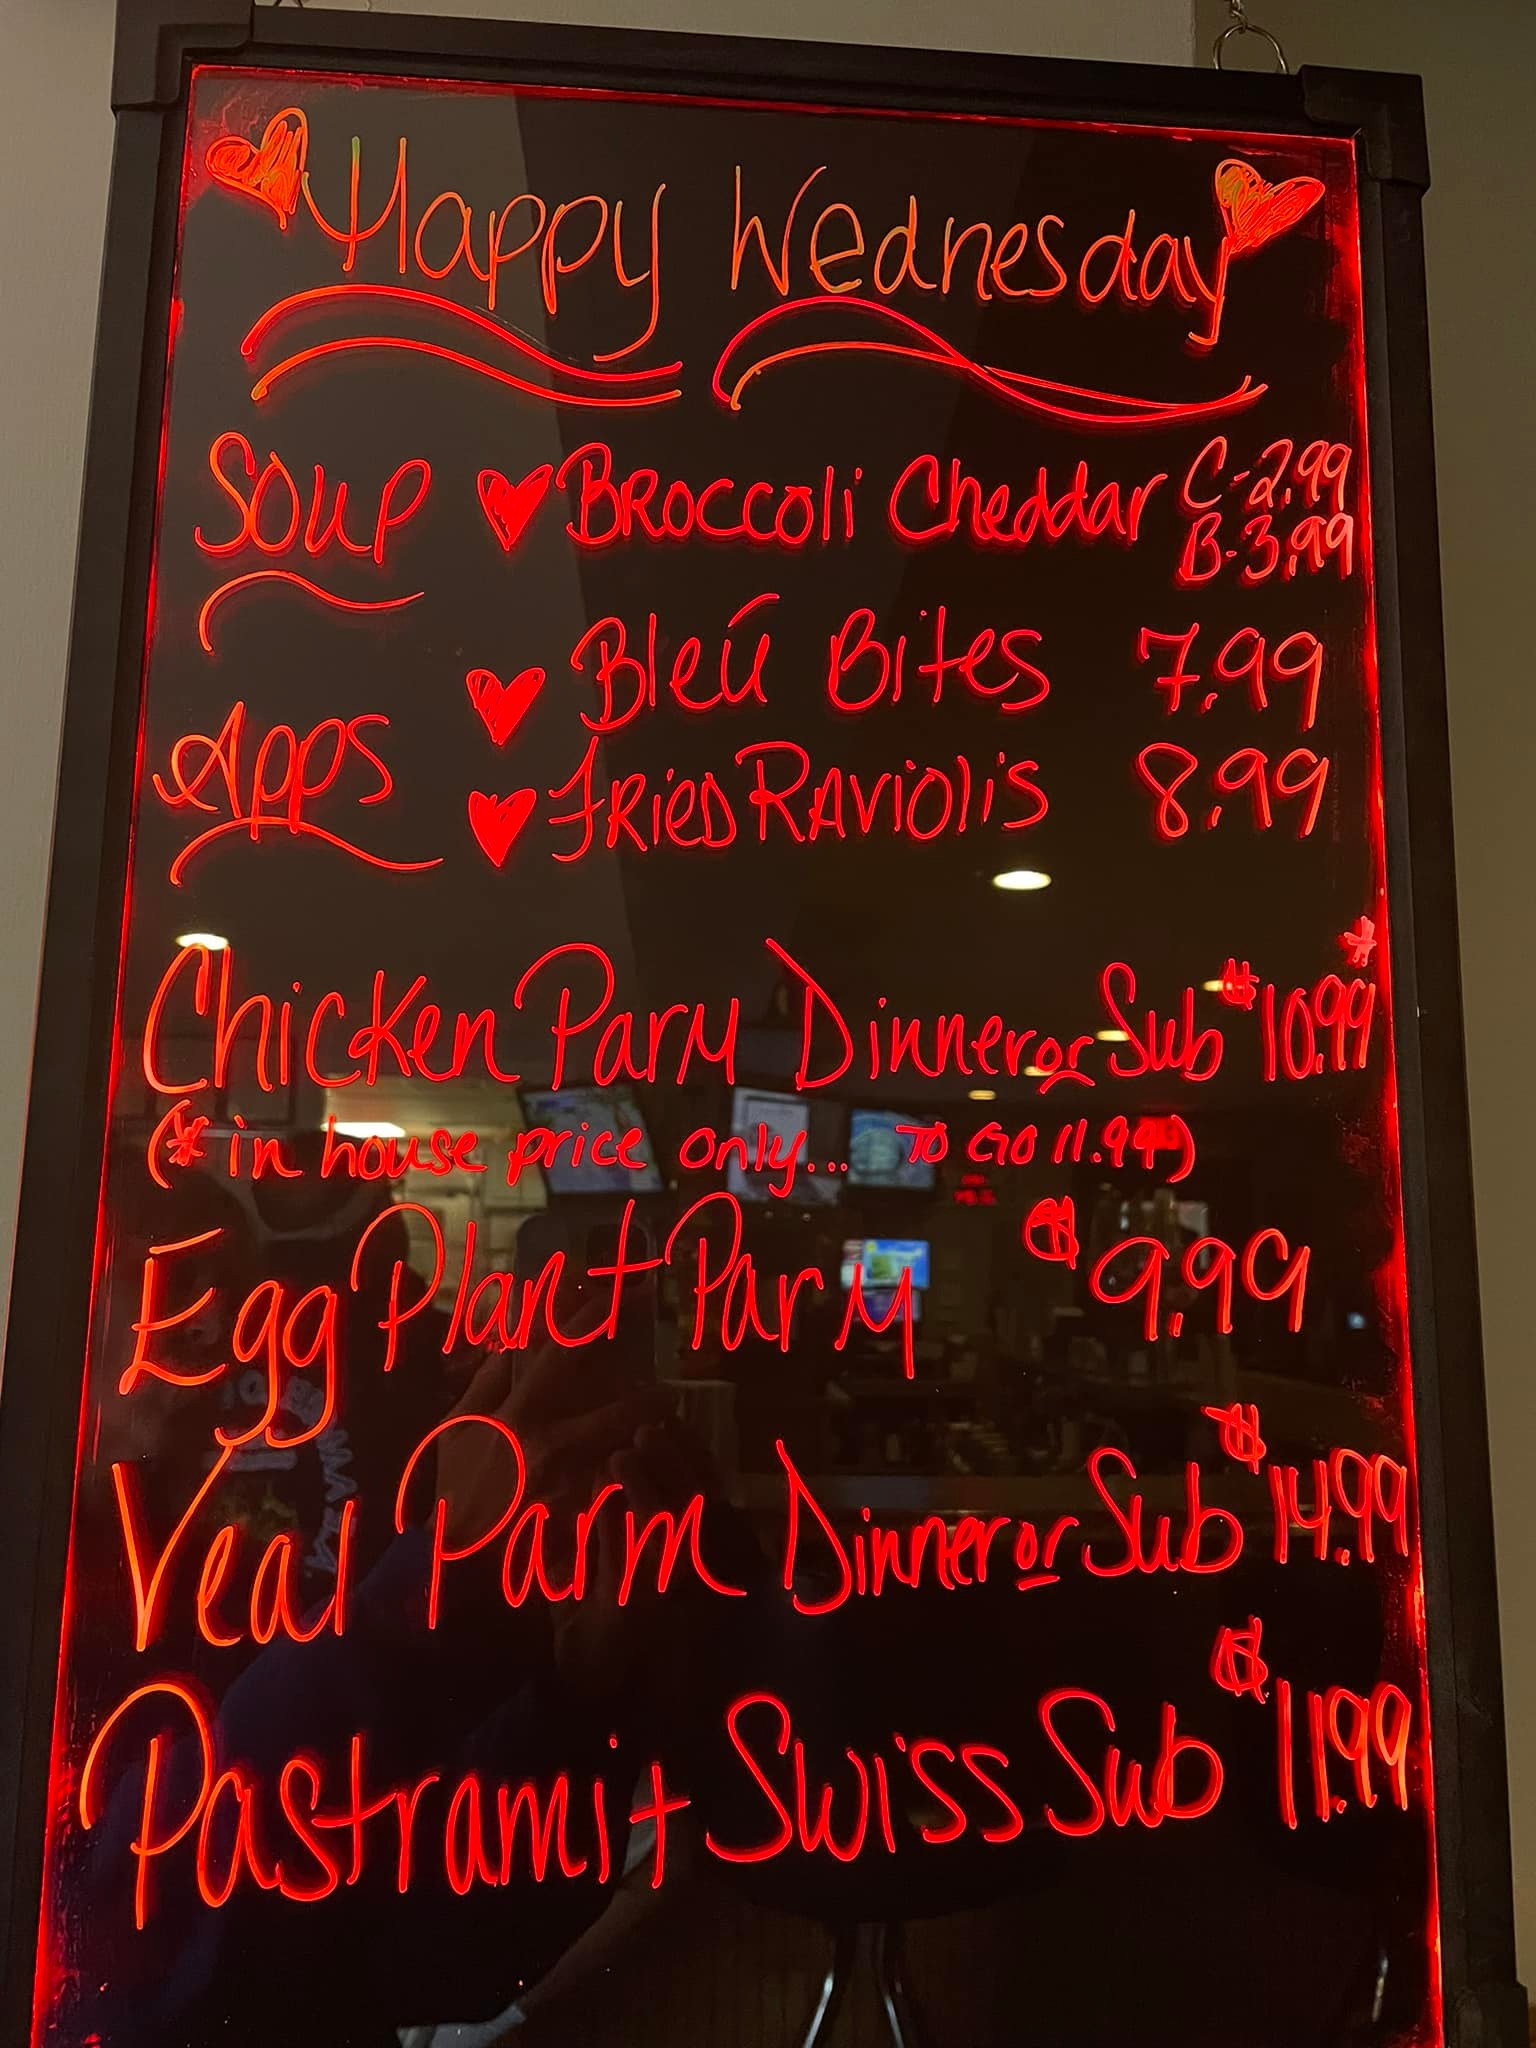 Happy Wednesday
Soup Broccoli Cheddar C-2.99
B-3.99
Bleú Bites 7.99
Apps
Fried Raviolis 8.99
Chicken Parm Dinner or Sub $10.99*
(* in house price only... To Go 11.99)
Egg Plant Parm $9.99
Veal Parm Dinner or Sub $14.99
Pastrami + Swiss Sub $11.99